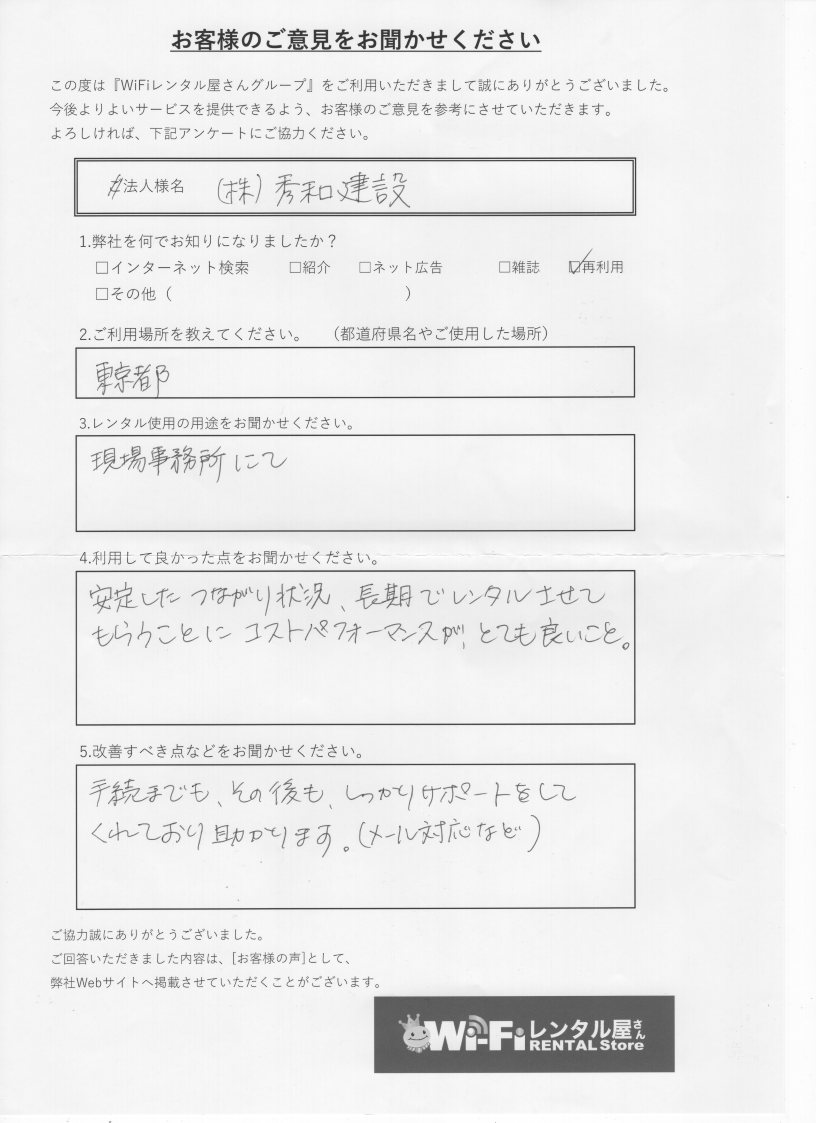 お客様のご意見をお聞かせください
この度は『WiFiレンタル屋さんグループ』をご利用いただきまして誠にありがとうございました。
今後よりよいサービスを提供できるよう、お客様のご意見を参考にさせていただきます。
よろしければ、下記アンケートにご協力ください。
法人様名 (株)秀和建設
1.弊社を何でお知りになりましたか？
□インターネット検索 □紹介 □ネット広告 □雑誌 ☑再利用
□その他（ ）
2.ご利用場所を教えてください。 （都道府県名やご使用した場所）
東京都
3.レンタル使用の用途をお聞かせください。
現場事務所にて
4.利用して良かった点をお聞かせください。
安定したつながり状況、長期でレンタルさせて
もらうことにコストパフォーマンスが、とても良いこと。
5.改善すべき点などをお聞かせください。
手続までも、その後も、しっかりサポートをして
くれており助かります。(メール対応など)
ご協力誠にありがとうございました。
ご回答いただきました内容は、[お客様の声]として、
弊社Webサイトへ掲載させていただくことがございます。
Wi-Fiレンタル屋さん
RENTAL Store